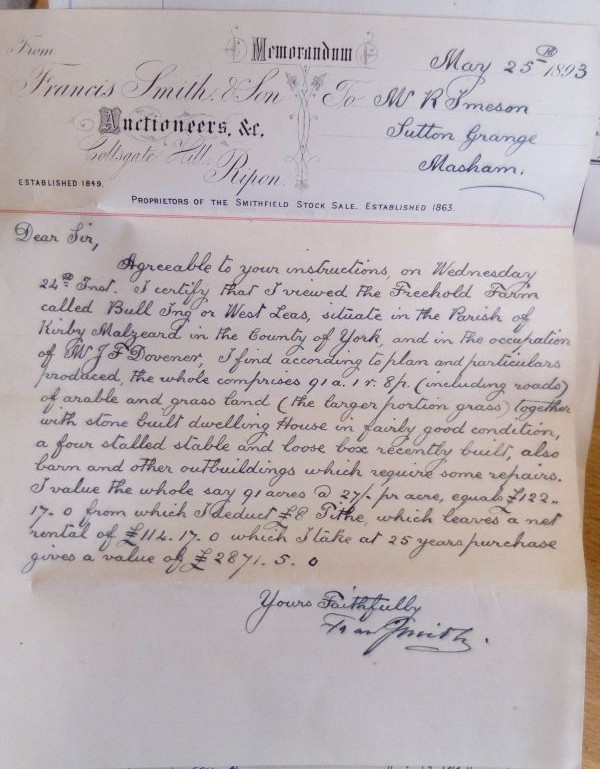 Memorandum
From
May 25th 1893
Francis Smith, & Son
To Mr R Imeson
Auctioneers, &c.
Sutton Grange
Coltsgate Hill,
Ripon.
Masham.
ESTABLISHED 1849.
PROPRIETORS OF THE SMITHFIELD STOCK SALE. ESTABLISHED 1863.
Dear Sir,
Agreeable to your instructions, on Wednesday
24th Inst. I certify that I viewed the Freehold Farm
called Bull Ing or West Leas, situate in the Parish of
Kirby Malzeard in the County of York, and in the occupation
of Mr J F Dovener, I find according to plan and particulars
produced, the whole comprises 91 a. 1 r. 8 p. (including roads)
of arable and grass land (the larger portion grass) together
with stone built dwelling House in fairly good condition,
a four stalled stable and loose box recently built, also
barn and other outbuildings which require some repairs.
I value the whole say 91 acres @ 27/- pr acre, equals £122..
17. 0 from which I deduct £8 Tithe, which leaves a net
rental of £114. 17. 0 which I take at 25 years purchase
gives a value of £2871. 5. 0
Yours Faithfully
Fras Smith.